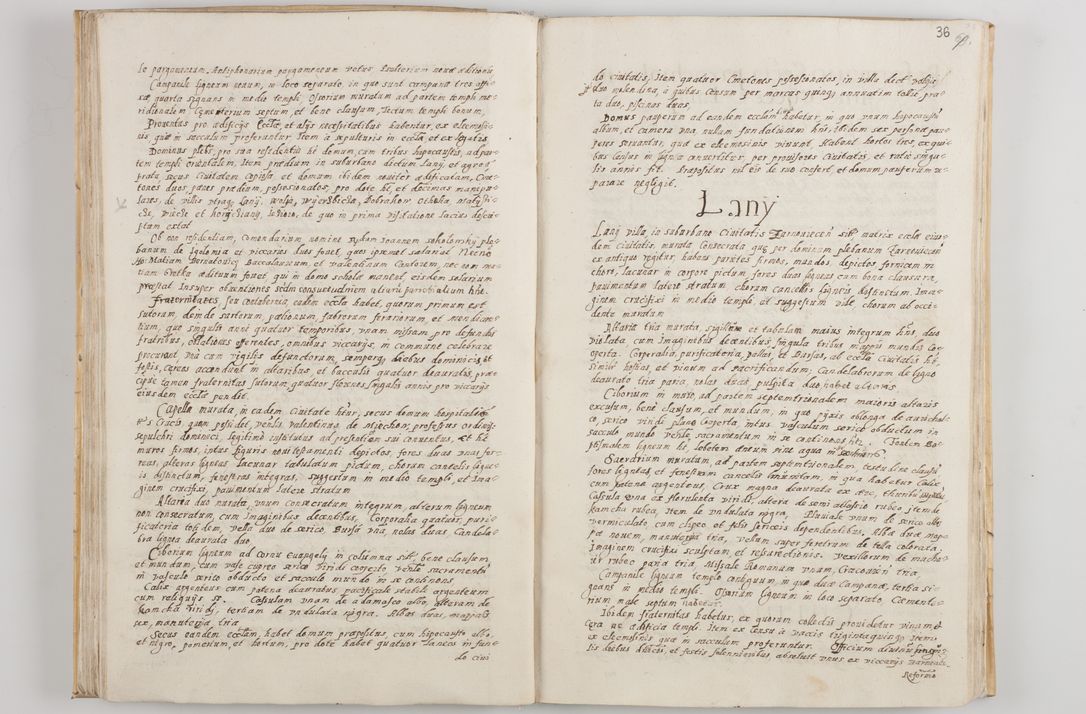 lo pargameum. Antiphonarium pargameneum vetus Psalterium novæ æditionis
Campanile ligneum unum, in loco separato, in quo sunt campanæ tres
quarta signans in medio templi. Ossorium muratum ad partem templi me-
ridionalem Cæmeterium septum, et bene clausum, Tectum templi bonum,
Proventus pro ædificijs Ecclæ, et alijs necessitatibus habentur, ex elemosi-
nis quæ in sacculum proferuntur. Item a sepulturis in eccla et ex legatis
Dominus plebs, pro sua residentia ht domum cum tribus hipocaustis, ad par-
tem templi orientalem. Item prædium in suburbano dictum Lany, et agros
prata, secus Civitatem copiosa, et domum ibidem leviter ædificatam, Cme-
tones duos, præter prædium, possesionatos, pro dote ht, et decimas manipu-
lares, de villis
de quo in prima visitatione lacius descri-
ptum extat
Ob non residentiam, comendarium nomine Joannem Sokolowsky ple-
banum de Igolomia et vicarios duos fovet, quos ipsemet salariat Necno
Matiam Bernatowicz Baccalaureum, et Valentinum Cantorem, nec non ma-
tiam ædituum fovet, qui in domo scholæ manent, eisdem salarium
præstat. Insuper obventiones scdm consuetudinem aliaru parrochialium hnt.
Fraternitates seu contubernia, eadem eccla habet, quorum primum est
sutorum, deinde sartorum, pælionum, fabrorum ferariorum, et mendican-
tium, quæ singulis anni quatuor temporibus, unam missam, pro defunctis
fratribus, oblationes offerentes, omnibus viccarijs, in communi celebrare
procurant, una cum vigilijs defunctorum, semperq diebus dominicis, et
festis, cæreos accendunt in altaribus, et bacculis quatuor deauratis, præ-
cipue tamen fraternitas sutorum, quatuor florenos singulis annis pro viccarijs
eiusdem ecclæ pendit.
Capella murata, in eadem Civitate htur, secus domum hospitalem
S. Crucis, quam possidet, venlis Valentinus, de Miechow, professus ordinis
sepulchri dominici, legitime institutus ad præsentationem sui conventus, et ht
muros firmos, intus figuris novi testamenti depictos, fores duas unas fer-
reas, alteras ligneas lacunar tabulatum pictum, chorum cancelis ligne-
is distinctum, fenestras integras, suggestum in medio templi, et Ima-
ginem crucifixi, pavimentum latere stratum
Altaria duo murata, unum consecratum integrum, alterum ligneum
non consecratum, cum Imaginibus decentibus, Corporalia quatuor, puri-
ficatoria totidem, vella duo de serico, Bursa una, nolas duas, Candela-
bra lignea deaurata duo
Ciborium ligneum ad Cornu Evangelij in columna sit, bene clausum,
et mundum, cum vase cupreo serico viridi coperto, venle sacramentu
in vasculo serico obducto et sacculo mundo in se continens
Calix argenteus cum patena deauratus pacificale stabile argenteum
cum reliquijs SS. Casulam unam de adamasco albo, alteram de
kamcha viridj, tertiam de undulata nigra. Albas duas, mappas
sex, manutergia, tria
Secus eandem ecclam, habet domum præpositus, cum hipocausto albo,
et nigro, pomerium, et hortum, pro dote habet quatuor laneos in fun-
do civi
36
do civitatis, Item quatuor Cmetones possesionatos, in villa dict
duo molendina, a quibus censum per marcas quinq annuatim tolit, pra-
ta duo, piscinas duas,
Domus pauperum ad eandem ecclam habetur, in qua unum hipocaustu
album, et camera una, nullam fundationem hnt, ibidem sex personæ pau-
peres servantur, quæ ex elemosinis vivunt. Habent hortos tres, ex qui-
bus census in ligna convertitur, per provisores Civitatis, et ratio singu-
lis annis fit. Præpositus nil eis de suo confert, et domum pauperum re-
parare neglegit.
Lany
Lany villa, in suburbano Civitatis Zarnoviecen sita matrix eccla eius-
dem civitatis, murata consecrata quæ per dominum plebanum Zarnovicen
ex antiquo regitur, habens parietes firmos, mundos depictos, fornicem in
choro, lacunar in corpore pictum, fores duas ligneas cum bona clausura,
pavimentum latere stratum chorum cancellis ligneis distinctum, Ima-
ginem crucifixi in medio templi, et suggestum vile, chorum ab occi-
dente muratum
Altaria tria murata, sigillum, et tabulam maius integrum hns, duo
violata, cum Imaginibus decentibus, singula tribus mappis mundis Co-
operta. Corporalia, purificatoria, pallas, et Bursas, ab eccla Civitatis ht
similr hostias, et vinum ad sacrificandum, Candelabrorum de ligno
deaurato tria paria, nolas duas, pulpita duo, habet altaris.
Ciborium in muro, ad partem septemtrionalem maioris altaris
excusum, bene clausum, et mundum, in quo pyxis oblonga de aurichal-
co, serico viridi plano coperta, intus vasculum serico obductum in
sacculo mundo venle sacramentum in se continens ht. Fontem Ba-
ptismalem ligneum ht, lebetem æneum sine aqua in
Sacrarium muratum, ad partem septentrionalem, testudine clausu
fores ligneas, et fenestram cancelis munitam, in qua habetur Calix
cum patena argenteus, Crux magna deaurata ex ære, thuribulum
Casula una ex florulenta viridi, altera de semi atlassio rubeo, item de
kamcha rubea, item de undulata nigra. Pluviale unum de serico albo
vermiculato, cum clipeo et filis sericeis dependentibus. Albæ duæ map-
pæ novem, manutergia tria, vellum super feretrum de tella colorata,
Imaginem crucifixi sculptam, et resurectionis. Vexillorum de mucha-
ir rubeo paria tria, Missale Romanum unum, Cracovien tria,
Campanile ligneum templo contiguum in quo duæ Campanæ, tertia si-
gnans in medio templi. Ossarium ligneum in loco separato, Cæmete-
rium male septum habetur.
Ibidem fraternitas habetur, ex quorum collectis providetur vinum,
cera, ut ædificia templi. Item ex censu a vaccis trigintaquinq Item
ex elemosinis quæ in sacculum proferuntur. Officium divinum
lis diebus, et festis solennioribus, absolvit unus ex viccarijs
Reformo